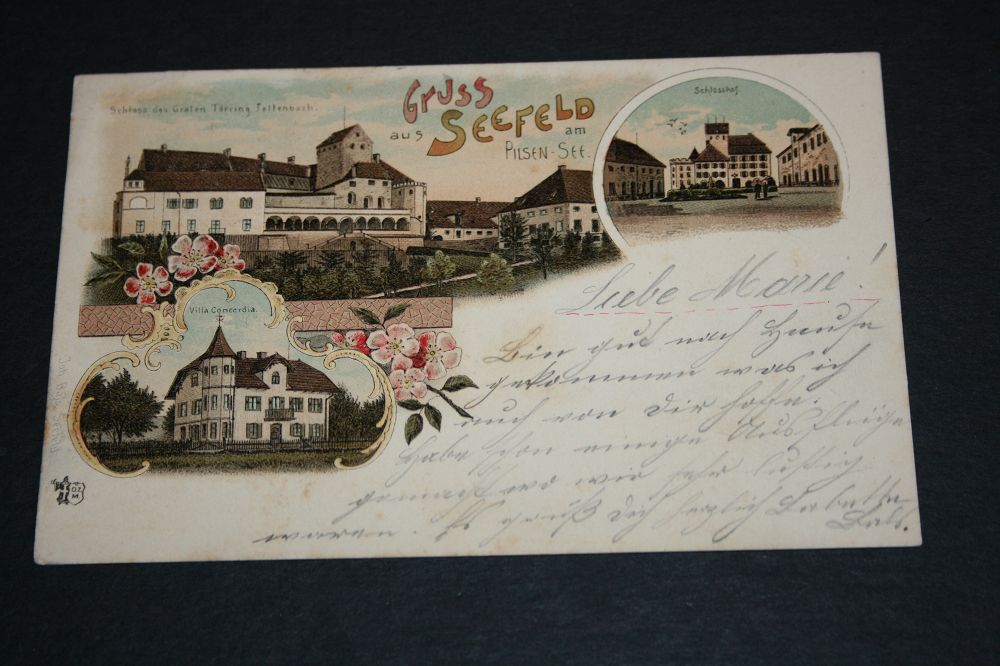 Schloss des Grafen Törring Jettenbach.
GRUSS
aus SEEFELD
am
PILSEN-SEE.
Schlosshof.
Villa Concordia.
O.Z.
M.
Liebe Marie!
Bin gut nach Hause
gekommen was ich
auch von Dir hoffe.
Habe schon einige Ausflüge
gemacht wo wir sehr lustig
waren. Es grüßt Dich herzlich Babette